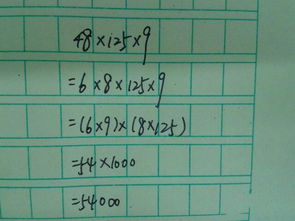 48×125×9
=6×8×125×9
=(6×9)×(8×125)
=54×1000
=54000